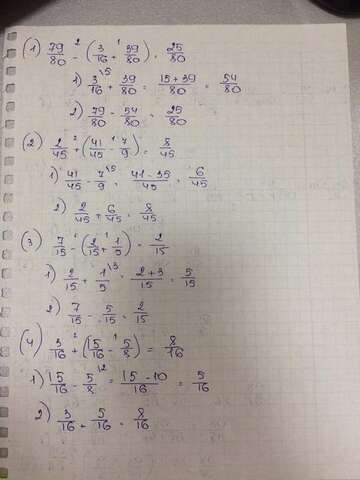 (1) 79/80 - (3/16 + 39/80) = 25/80
1) 3/16 + 39/80 = 15+39/80 = 54/80
2) 79/80 - 54/80 = 25/80
(2) 2/45 + (41/45 - 7/9) = 8/45
1) 41/45 - 7/9 = 41-35/45 = 6/45
2) 2/45 + 6/45 = 8/45
(3) 7/15 - (2/15 + 1/5) = 2/15
1) 2/15 + 1/5 = 2+3/15 = 5/15
2) 7/15 - 5/15 = 2/15
(4) 3/16 + (15/16 - 5/8) = 8/16
1) 15/16 - 5/8 = 15-10/16 = 5/16
2) 3/16 + 5/16 = 8/16